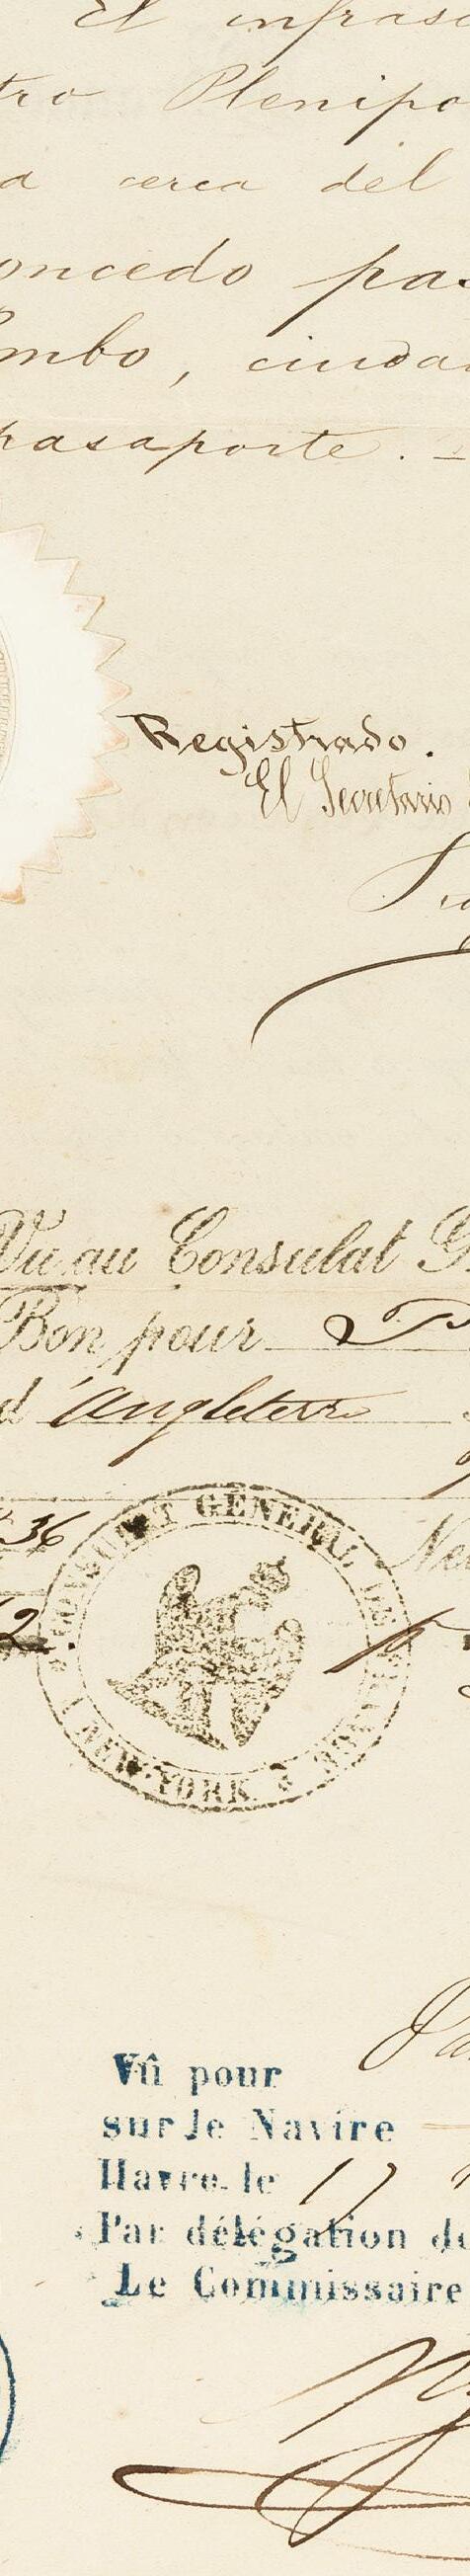 El infrasc
tro Plenipo
a cerca del
oncedo pas
mbo, ciudad
pasaporte. –
Registrado.
El Secretario
Vu au Consulat G
Bon pour P
d'Angleterre
36
CONSULAT GÉNÉRAL DE
A NEW-YORK
2.
Vû pour
sur le Navire
Havre, le 17
Par délégation du
Le Commissaire